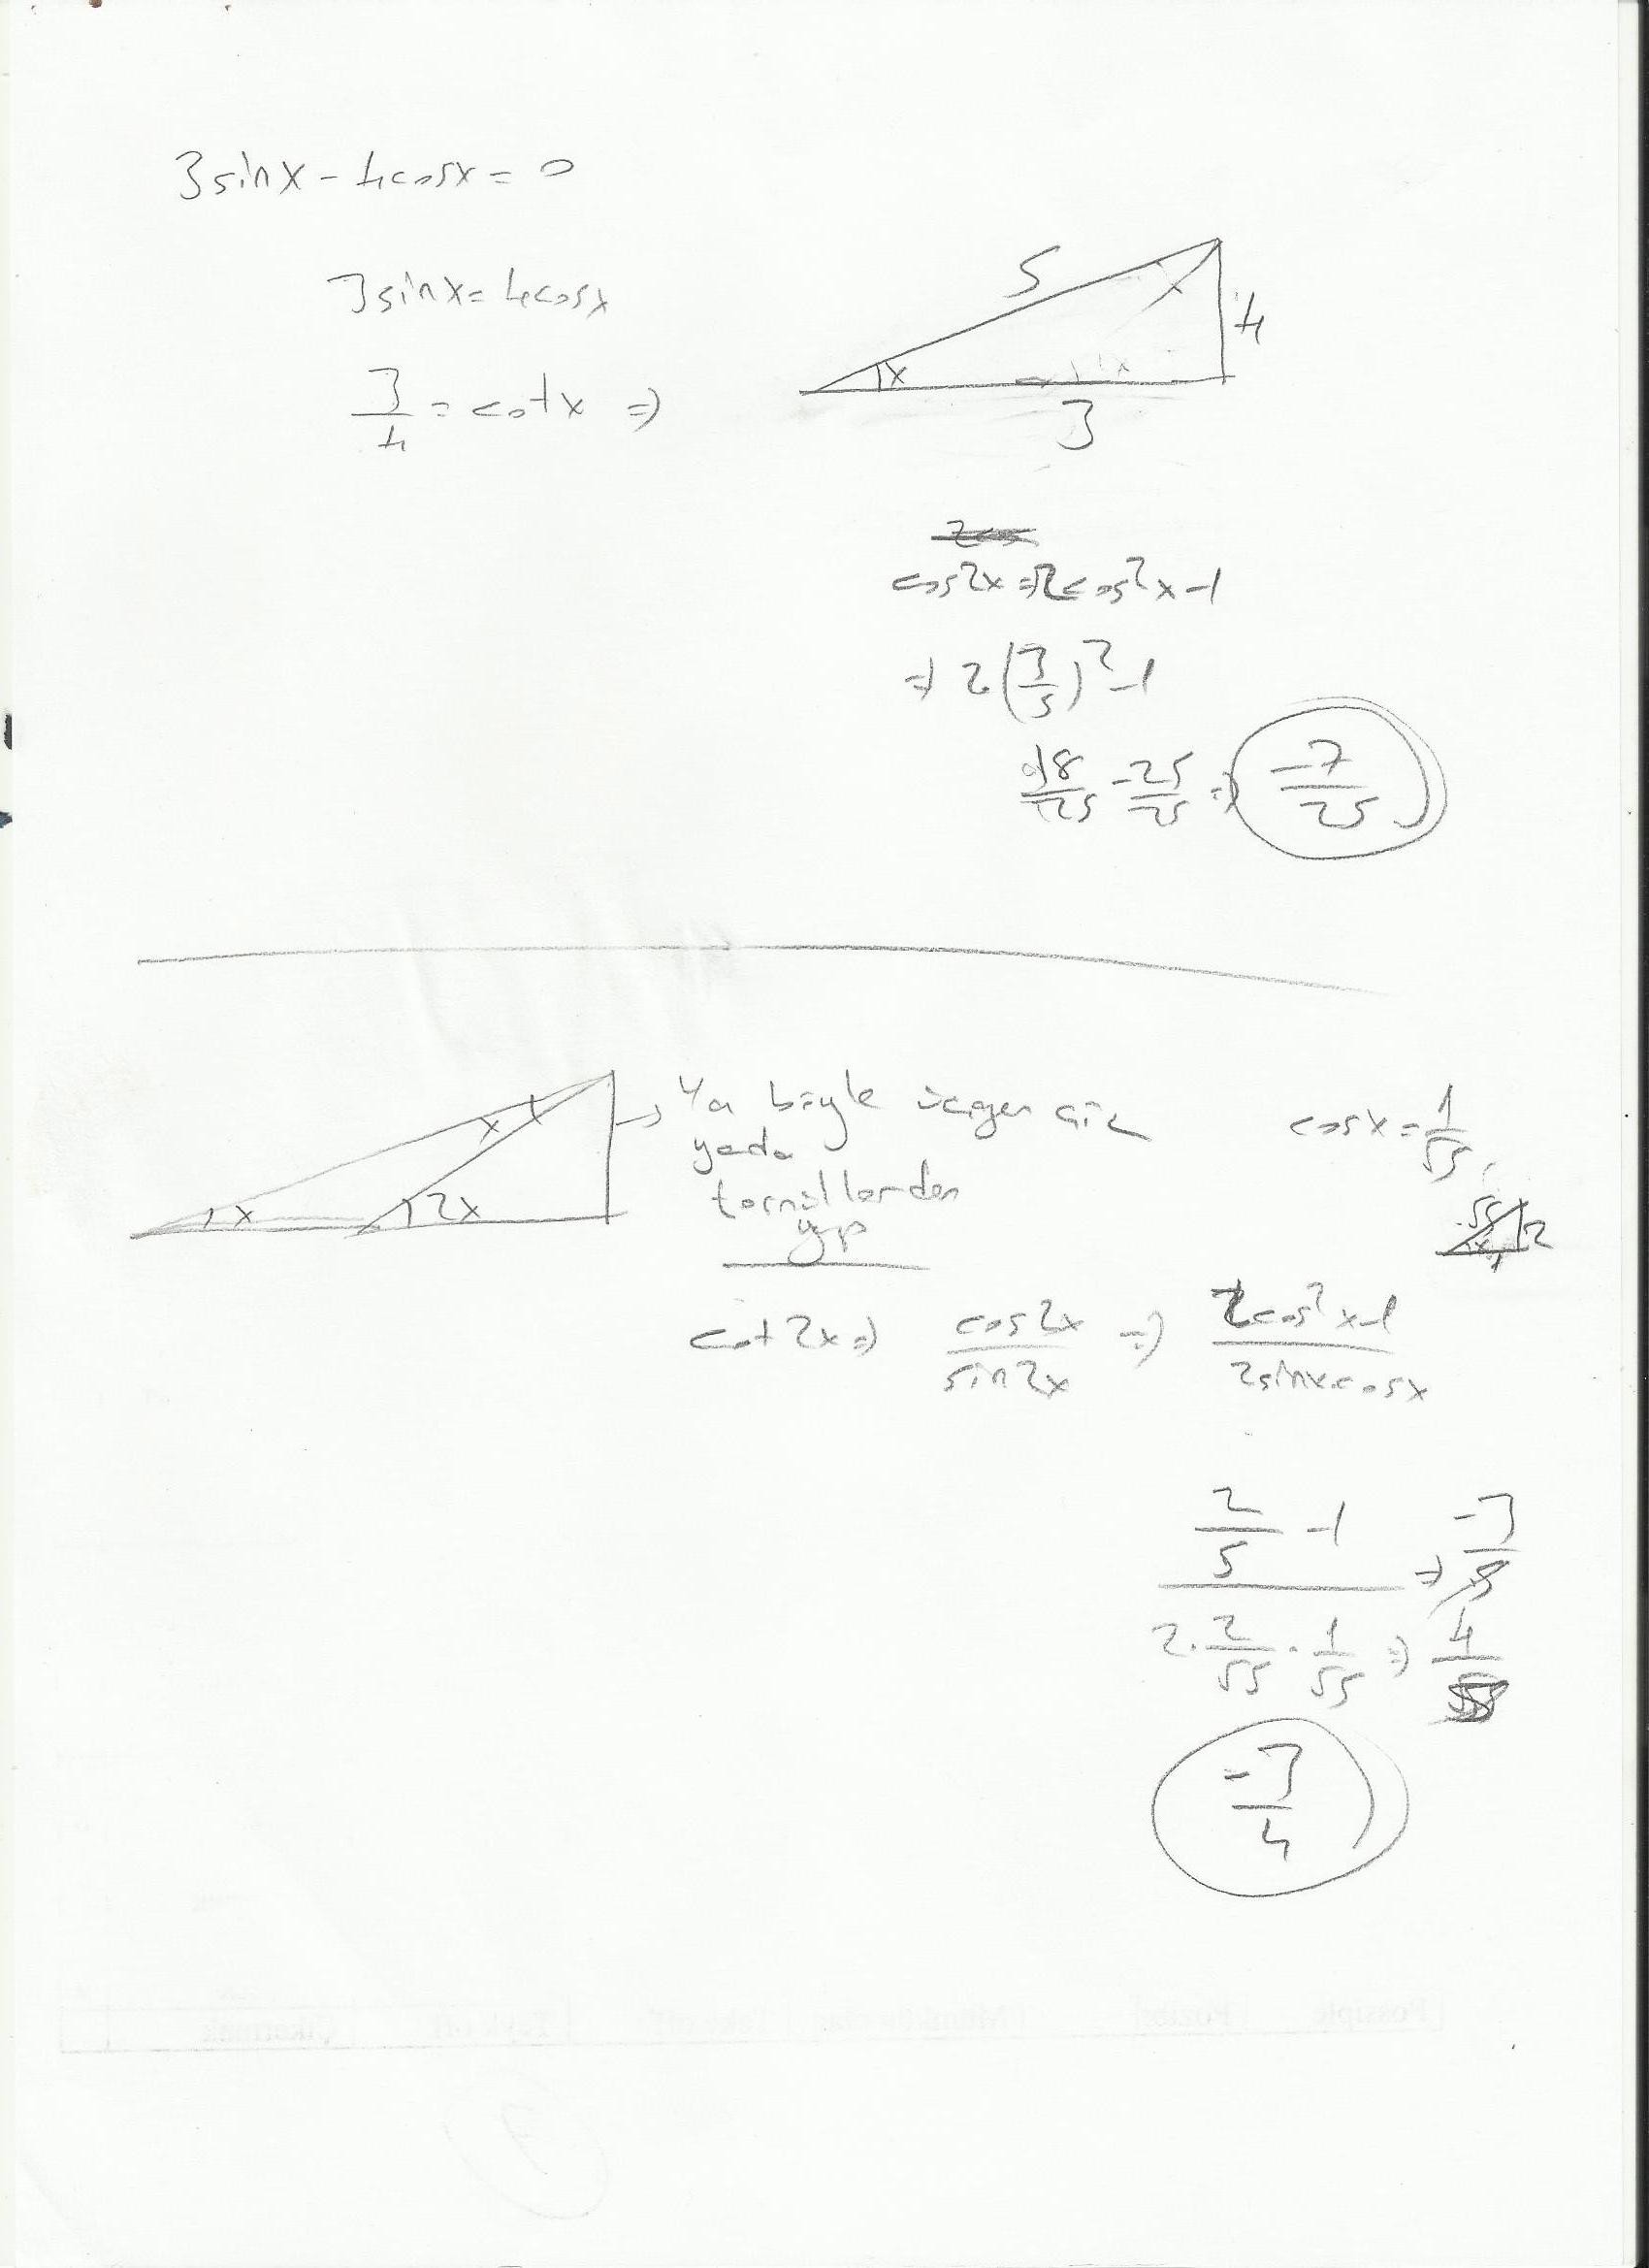 3sinx - 4cosx = 0
3sinx = 4cosx
3/4 = cotx ⇒
5
4
x
3
cos2x ⇒ 2cos²x-1
⇒ 2(3/5)²-1
18/25 - 25/25 ⇒ -7/25
x
x
2x
Ya böyle üçgen çiz
yada
formüllerden
yp
cosx = 1/√5
√5
2
x
1
cot2x ⇒ cos2x/sin2x ⇒ 2cos²x-1/2sinx.cosx
2/5 - 1 ⇒ -3/5
2.2/√5 . 1/√5 ⇒ 4/5
-3/4